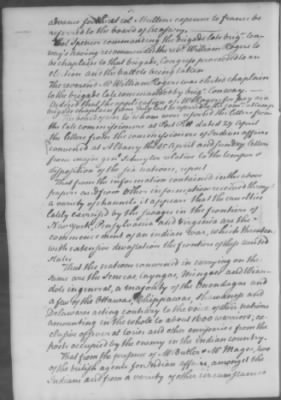 advance for the at col Mullens expence to france be
referred to the board of treasury.
That Spencer commanding the brigade late brigr Con-
way's having recommended the revd William Rogers to
be chaplain to that brigade, Congress proceeded to an
election and the ballots being taken
The reverend Mr William Rogers was elected chaplain
to the brigade late commanded by brigr Conway.
Ordered that the application of Mr Rogers for pay as a
brigade chaplain
to whom were referred the letter from
the late commissioners at fort Pitt dated 27 April
the letter from the commissioners of Indian affairs
convened at Albany the 15 April and sundry letters
from major genl Schuyler relative to the temper &
disposition of the six nations, report
That from the information contained in the above
papers and from other information received through
a variety of channels it appears that the cruelties
lately exercised by the savages in the frontiers of
New York, Pensylvania and Virginia are the
commencement of an indian war, which threatens
with extensive devastation the frontiers of these united
States.
That the nations concerned in carrying on the
same are the Senecas cayugas, Mingoes and Wian-
dots in general, a majority of the Onondagas and
a few of the Ottawas, Chippawas, Shawnese and
Delawares acting contrary to the voice of their nations
amounting in the whole to about 1600 warriors, ex-
clusive of several tories and other emissaries from the
posts occupied by the enemy in the Indian country.
That from the presence of Mr Butler & Mr Magee, two
of the british agents for Indian affairs, amongst the
Indians and from a variety of other circumstances